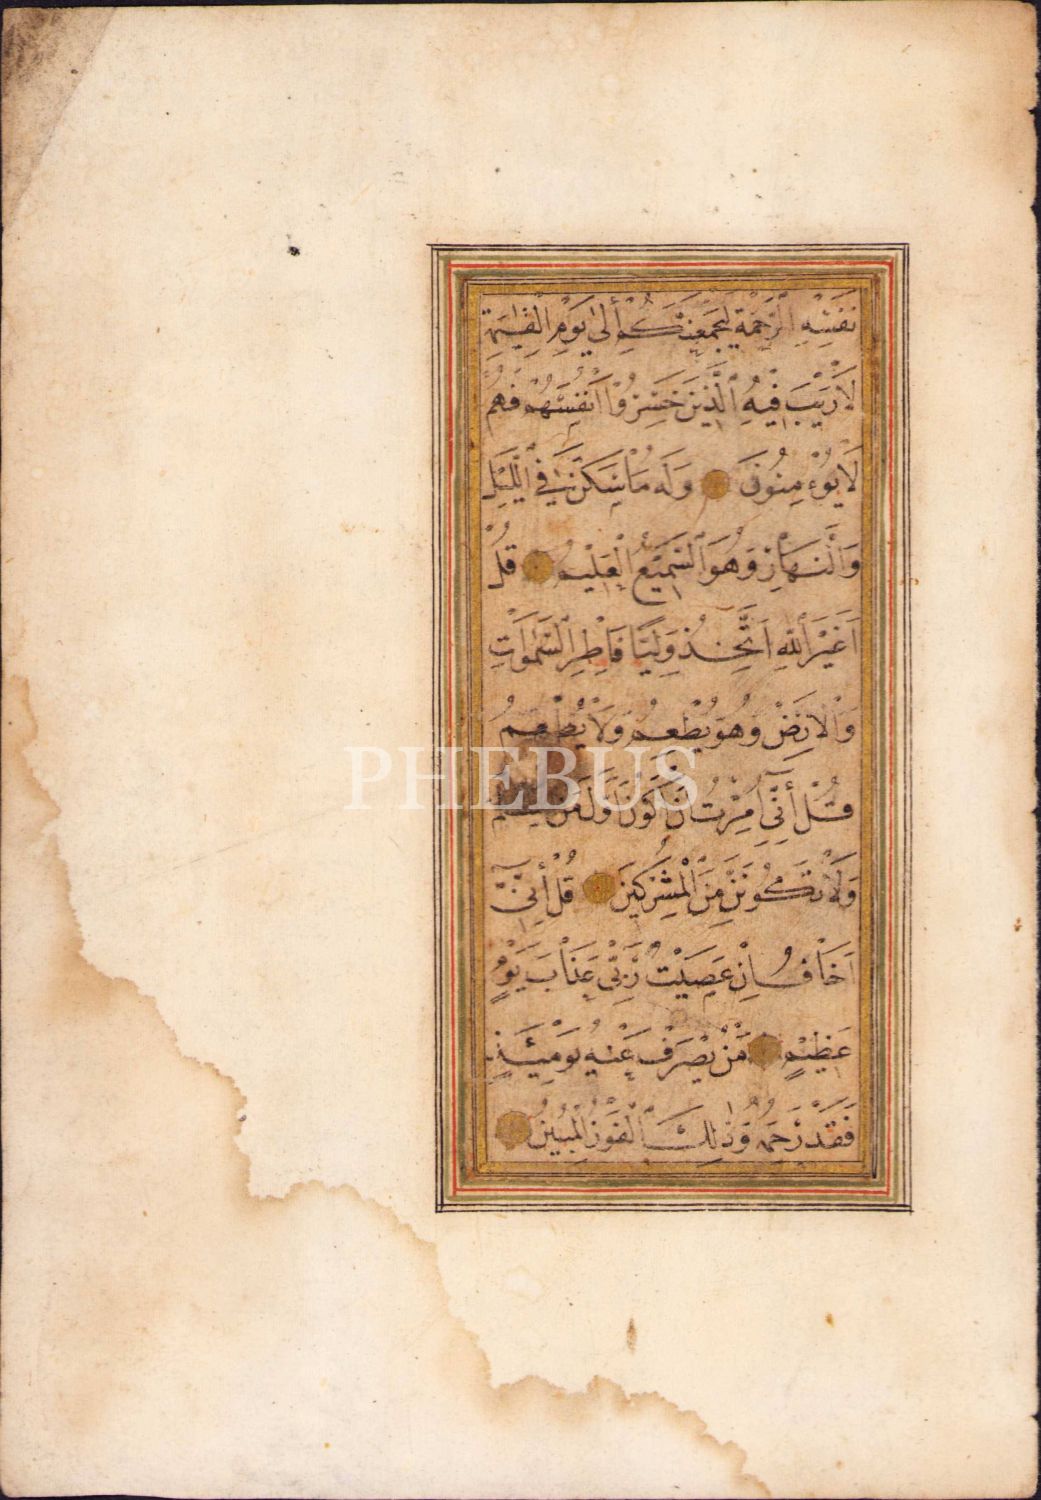 نَفْسِهِ الرَّحْمَةَ لَيَجْمَعَنَّكُمْ إِلٰى يَوْمِ الْقِيٰمَةِ
لَا رَيْبَ فِيهِ الَّذِينَ خَسِرُوا أَنْفُسَهُمْ فَهُمْ
لَا يُؤْمِنُونَ وَلَهُ مَا سَكَنَ فِي الَّيْلِ
وَالنَّهَارِ وَهُوَ السَّمِيعُ الْعَلِيمُ قُلْ
أَغَيْرَ اللّٰهِ أَتَّخِذُ وَلِيًّا فَاطِرِ السَّمٰوَاتِ
وَالْأَرْضِ وَهُوَ يُطْعِمُ وَلَا يُطْعَمُ
PHEBUS
قُلْ إِنِّي أُمِرْتُ أَنْ أَكُونَ أَوَّلَ مَنْ
وَلَا تَكُونَنَّ مِنَ الْمُشْرِكِينَ قُلْ إِنِّي
أَخَافُ إِنْ عَصَيْتُ رَبِّي عَذَابَ يَوْمٍ
عَظِيمٍ مَنْ يُصْرَفْ عَنْهُ يَوْمَئِذٍ
فَقَدْ رَحِمَهُ وَذٰلِكَ الْفَوْزُ الْمُبِينُ